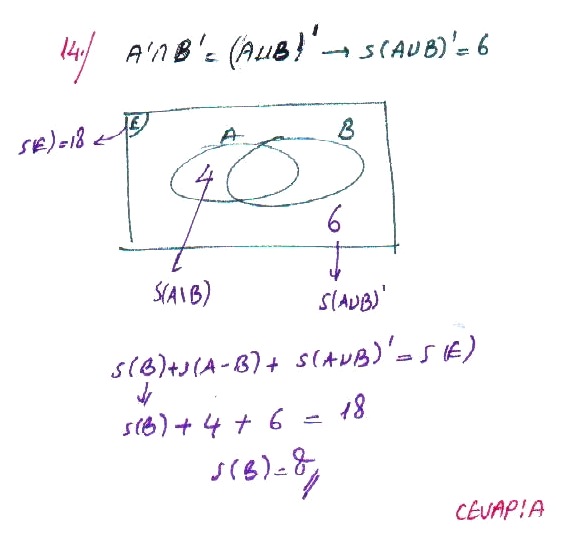 14./ A'∩B' = (A∪B)' → S(A∪B)' = 6
E
S(E)=18
A B
4
6
S(A\B)
S(A∪B)'
S(B)+S(A-B)+ S(A∪B)' = S(E)
S(B) + 4 + 6 = 18
S(B)=8
CEVAP:A